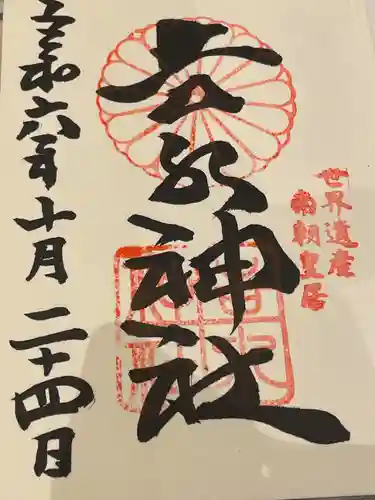 世界遺産
南朝皇居
吉水神社
令和六年十月二十四日